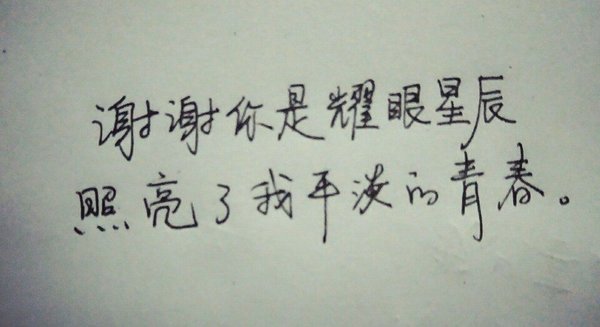 谢谢你是耀眼星辰
照亮了我平淡的青春。